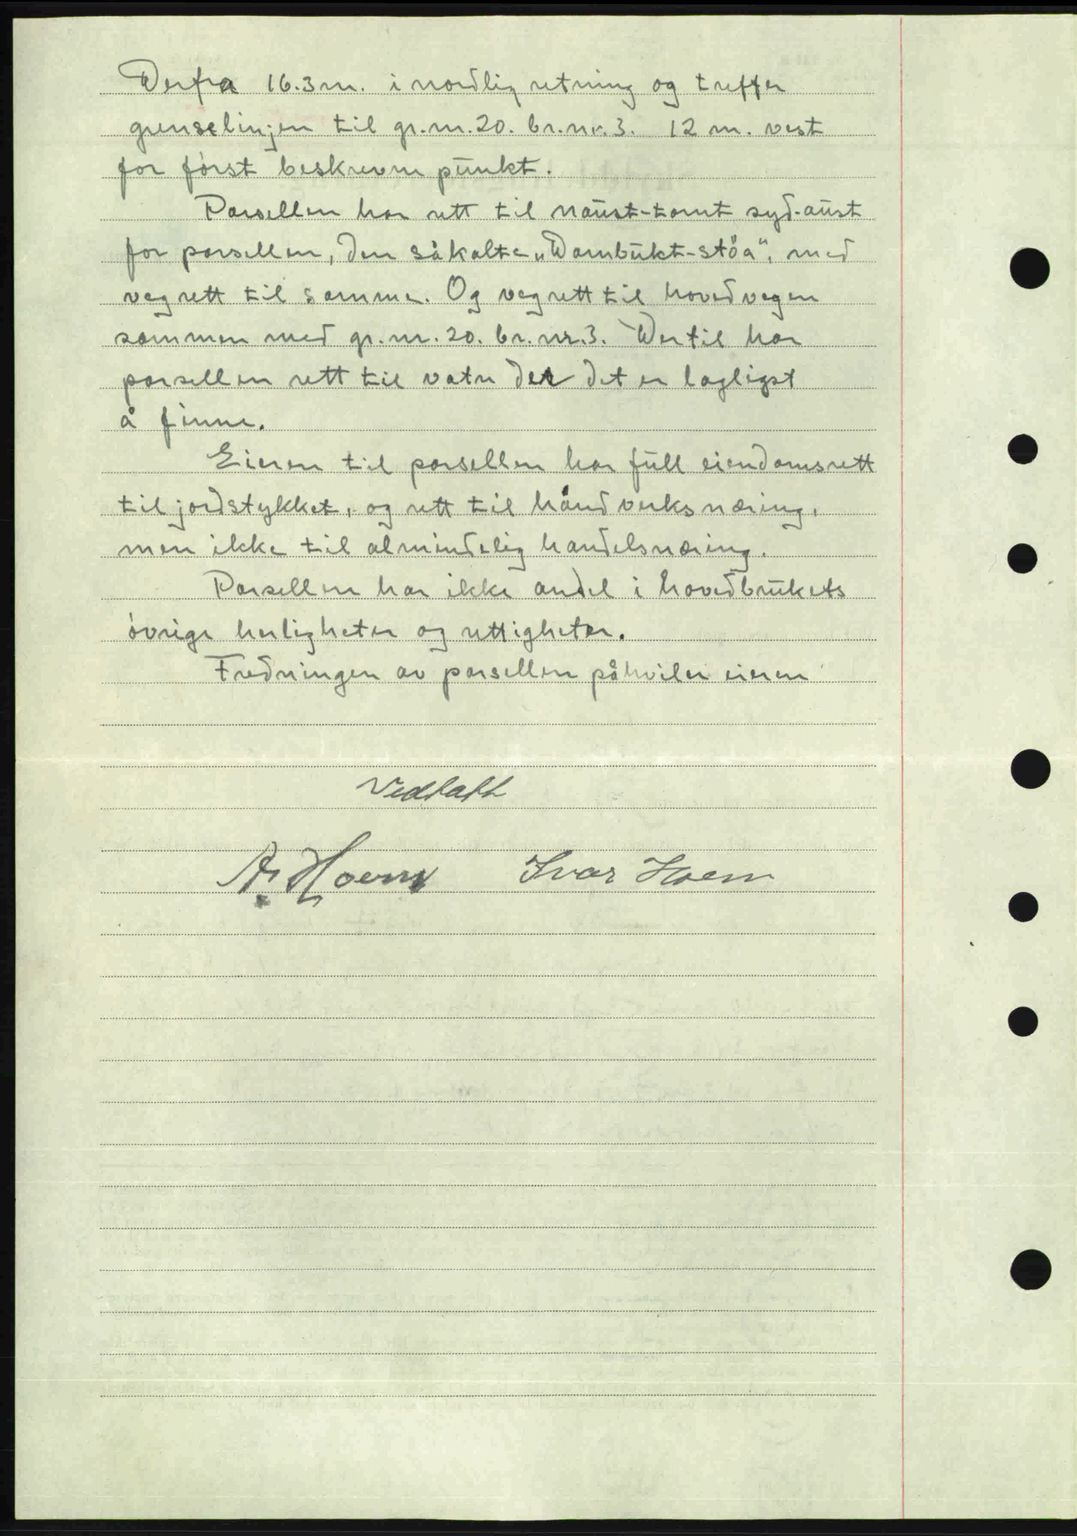 Derfra 16.3 m. i nordlig retning og treffer
grenselinjen til gr.nr.20. br.nr.3. 12 m. vest
for først beskrevne punkt.
Parsellen har rett til naust-tomt syd-aust
for parsellen, den såkalte „Dambukt-støa“, med
vegrett til samme. Og vegrett til hovedvegen
sammen med gr.nr.20. br.nr.3. Dertil har
parsellen rett til vatn der det er lagligst
å finne.
Eieren til parsellen har full eiendomsrett
til jordstykket, og rett til håndverksnæring,
men ikke til almindelig handelsnæring.
Parsellen har ikke andel i hovedbrukets
øvrige herligheter og rettigheter.
Fredningen av parsellen påhviler eieren
Vedtatt
A. Hoem Ivar Hoem